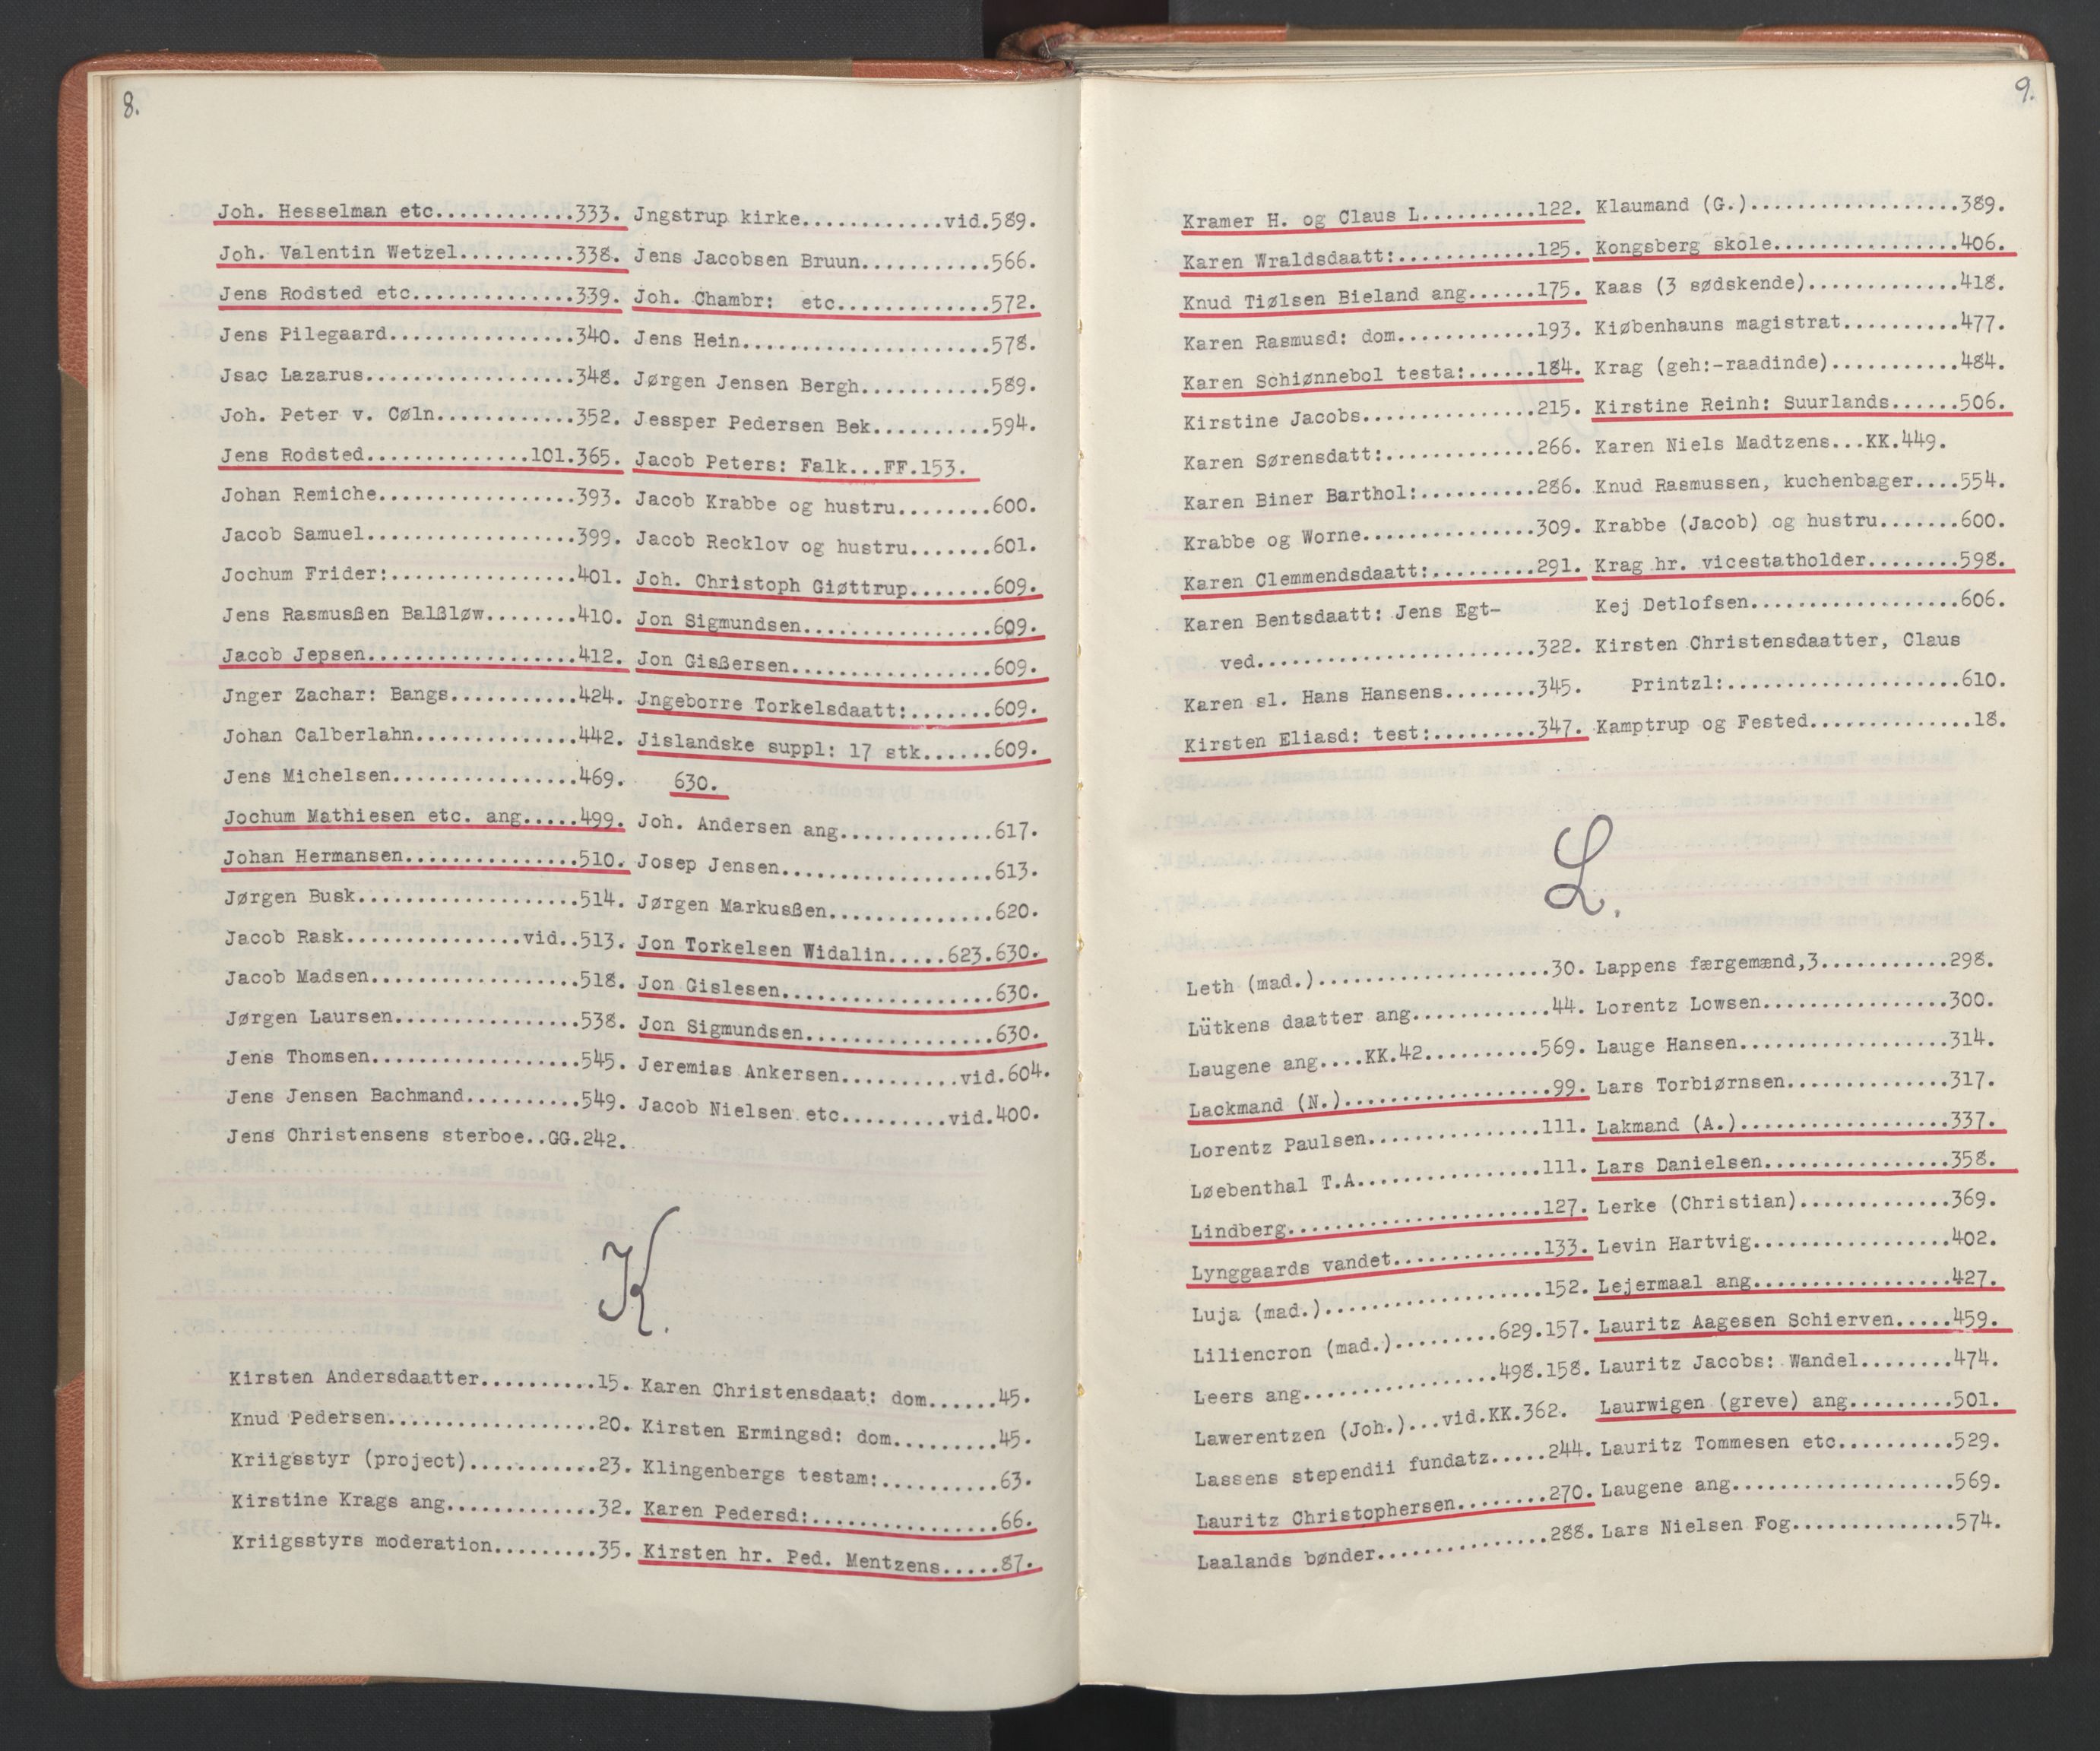 8.
Joh. Hesselman etc............333.
Joh. Valentin Wetzel..........338.
Jens Rodsted etc..............339.
Jens Pilegaard................340.
Jsac Lazarus..................348.
Joh. Peter v. Cøln............352.
Jens Rodsted..............101.365.
Johan Remiche.................393.
Jacob Samuel..................399.
Jochum Frider:................401.
Jens Rasmusßen Balßløw........410.
Jacob Jepsen..................412.
Jnger Zachar: Bangs...........424.
Johan Calberlahn..............442.
Jens Michelsen................469.
Jochum Mathiesen etc. ang.....499.
Johan Hermansen...............510.
Jørgen Busk...................514.
Jacob Rask...............vid..513.
Jacob Madsen..................518.
Jørgen Laursen................538.
Jens Thomsen..................545.
Jens Jensen Bachmand..........549.
Jens Christensens sterboe..GG.242.
Jngstrup kirke............vid.589.
Jens Jacobsen Bruun...........566.
Joh. Chambr:  etc.............572.
Jens Hein.....................578.
Jørgen Jensen Bergh...........589.
Jessper Pedersen Bek..........594.
Jacob Peters: Falk...FF.153.
Jacob Krabbe og hustru........600.
Jacob Recklov og hustru.......601.
Joh. Christoph Giøttrup.......609.
Jon Sigmundsen................609.
Jon Gisßersen.................609.
Jngeborre Torkelsdaatt:.......609.
Jislandske suppl: 17 stk......609.
630.
Joh. Andersen ang.............617.
Josep Jensen..................613.
Jørgen Markusßen..............620.
Jon Torkelsen Widalin.....623.630.
Jon Gislesen..................630.
Jon Sigmundsen................630.
Jeremias Ankersen..........vid.604.
Jacob Nielsen etc.........vid.400.
K.
Kirsten Andersdaatter..........15.
Knud Pedersen..................20.
Kriigsstyr (project)...........23.
Kirstine Krags ang.............32.
Kriigsstyrs moderation.........35.
Karen Christensdaat: dom......45.
Kirsten Ermingsd: dom.........45.
Klingenbergs testam:..........63.
Karen Pedersd:................66.
Kirsten hr. Ped. Mentzens.....87.
9.
Kramer H. og Claus L..........122.
Karen Wraldsdaatt:............125.
Knud Tiølsen Bieland ang......175.
Karen Rasmusd: dom............193.
Karen Schiønnebol testa:......184.
Kirstine Jacobs...............215.
Karen Sørensdatt:.............266.
Karen Biner Barthol:..........286.
Krabbe og Worne...............309.
Karen Clemmendsdaatt:.........291.
Karen Bentsdaatt: Jens Egt-
ved.........................322.
Karen sl. Hans Hansens........345.
Kirsten Eliasd: test:.........347.
Klaumand (G.)..................389.
Kongsberg skole................406.
Kaas (3 sødskende).............418.
Kiøbenhauns magistrat..........477.
Krag (geh:-raadinde)...........484.
Kirstine Reinh: Suurlands......506.
Karen Niels Madtzens...KK.449.
Knud Rasmussen, kuchenbager....554.
Krabbe (Jacob) og hustru.......600.
Krag hr. vicestatholder........598.
Kej Detlofsen..................606.
Kirsten Christensdaatter, Claus
Printzl:.....................610.
Kamptrup og Fested..............18.
L.
Leth (mad.)....................30.
Lütkens daatter ang............44.
Laugene ang....KK.42..........569.
Lackmand (N.)..................99.
Lorentz Paulsen...............111.
Løebenthal T.A................111.
Lindberg......................127.
Lynggaards vandet.............133.
Luja (mad.)...................152.
Liliencron (mad.).........629.157.
Leers ang.................498.158.
Lawerentzen (Joh.)...vid.KK.362.
Lassens stependii fundatz.....244.
Lauritz Christophersen........270.
Laalands bønder...............288.
Lappens færgemænd,3...........298.
Lorentz Lowsen................300.
Lauge Hansen..................314.
Lars Torbiørnsen..............317.
Lakmand (A.)..................337.
Lars Danielsen................358.
Lerke (Christian).............369.
Levin Hartvig.................402.
Lejermaal ang.................427.
Lauritz Aagesen Schierven.....459.
Lauritz Jacobs: Wandel........474.
Laurwigen (greve) ang.........501.
Lauritz Tommesen etc..........529.
Laugene ang...................569.
Lars Nielsen Fog..............574.